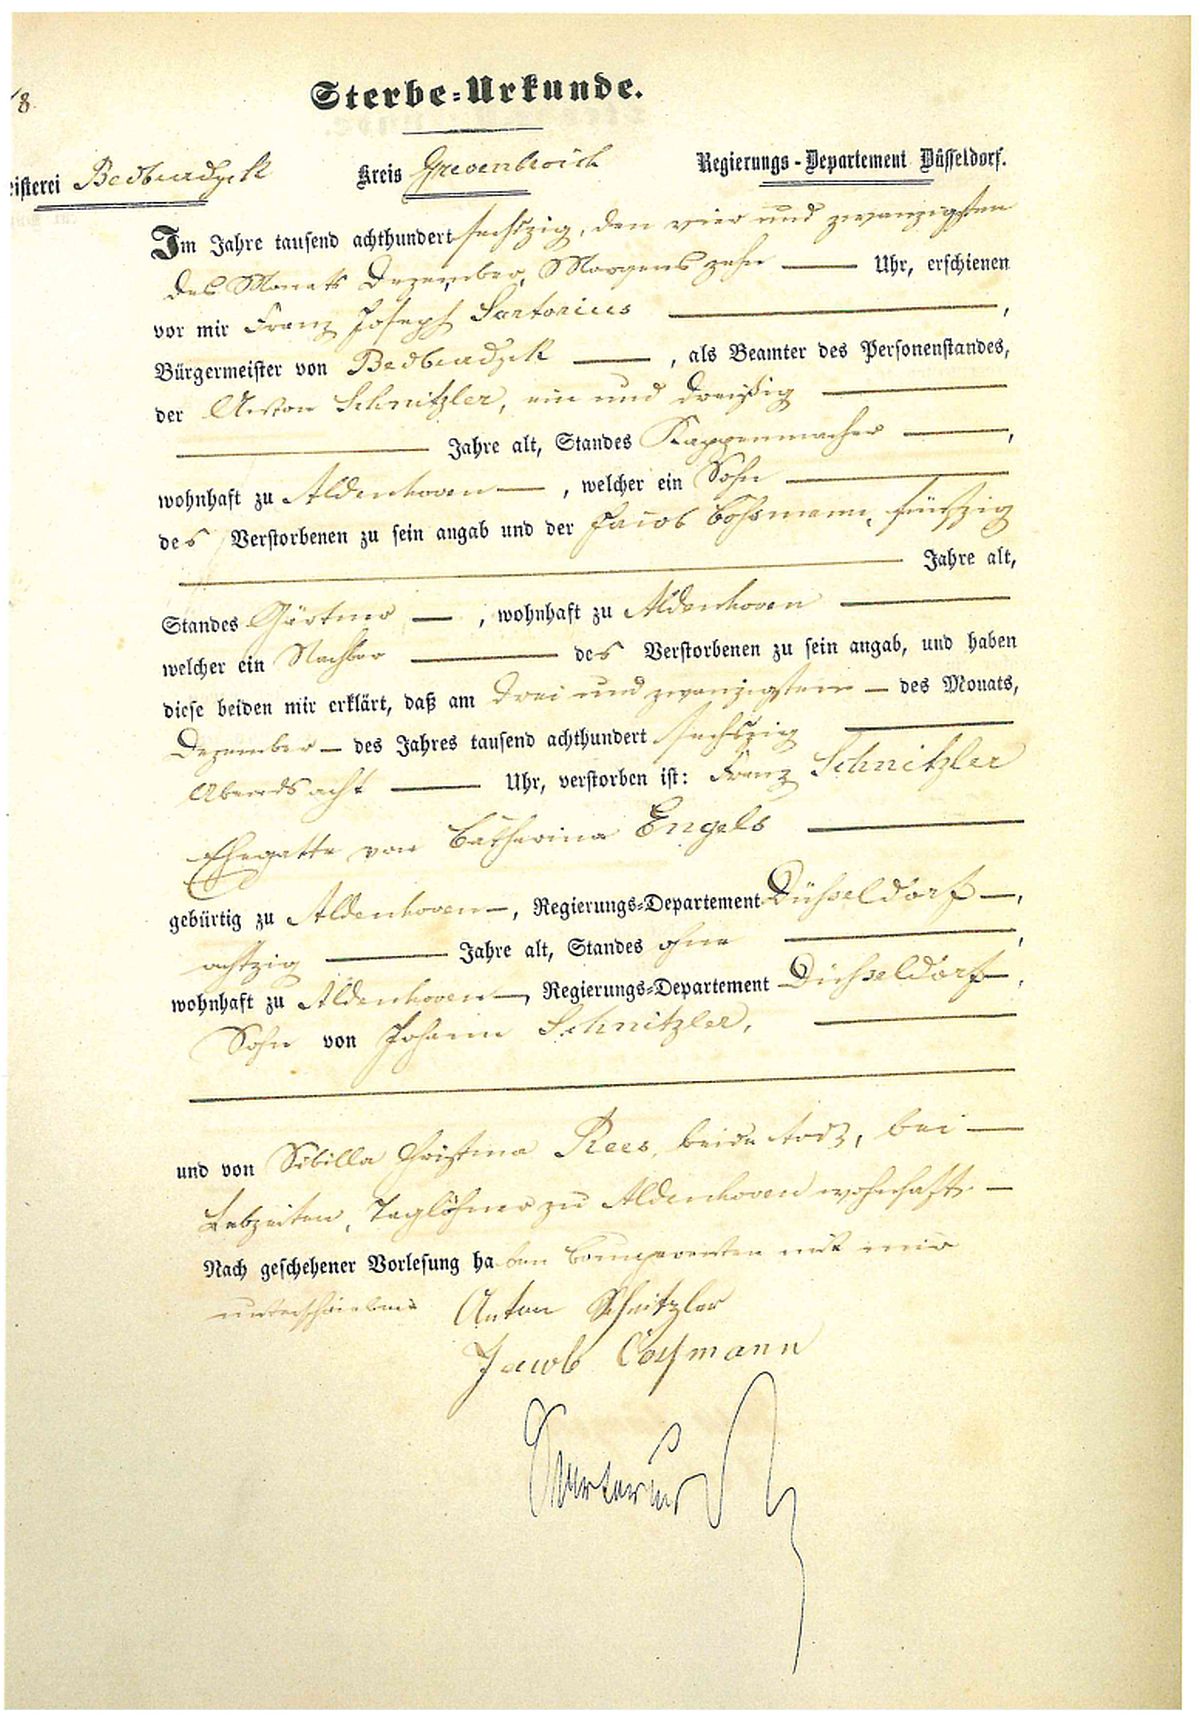 8
Sterbe-Urkunde.
eisterei Bedburdyck Kreis Grevenbroich Regierungs-Departement Düsseldorf.
Im Jahre tausend achthundert sechszig, den vier und zwanzigsten
des Monats Dezember, Morgens zehn Uhr, erschienen
vor mir Franz Joseph Sartorius ,
Bürgermeister von Bedburdyck , als Beamter des Personenstandes,
der Anton Schnitzler, ein und dreißig
Jahre alt, Standes Kappenmacher ,
wohnhaft zu Aldenhoven , welcher ein Sohn
des Verstorbenen zu sein angab und der Jacob Coßmann, fünfzig
Jahre alt,
Standes Gärtner , wohnhaft zu Aldenhoven
welcher ein Nachbar des Verstorbenen zu sein angab, und haben
diese beiden mir erklärt, daß am drei und zwanzigsten des Monats,
Dezember des Jahres tausend achthundert sechszig
Abends acht Uhr, verstorben ist: Franz Schnitzler
Ehegatte von Catharina Engels
gebürtig zu Aldenhoven , Regierungs-Departement Düsseldorf ,
achtzig Jahre alt, Standes ohne ,
wohnhaft zu Aldenhoven , Regierungs-Departement Düsseldorf ,
Sohn von Johann Schnitzler,
und von Sibilla Christina Rees, beide todt, bei
Lebzeiten, Taglöhner zu Aldenhoven wohnhaft.
Nach geschehener Vorlesung haben Comparenten mit mir
unterschrieben
Anton Schnitzler
Jacob Cossmann
Sartorius